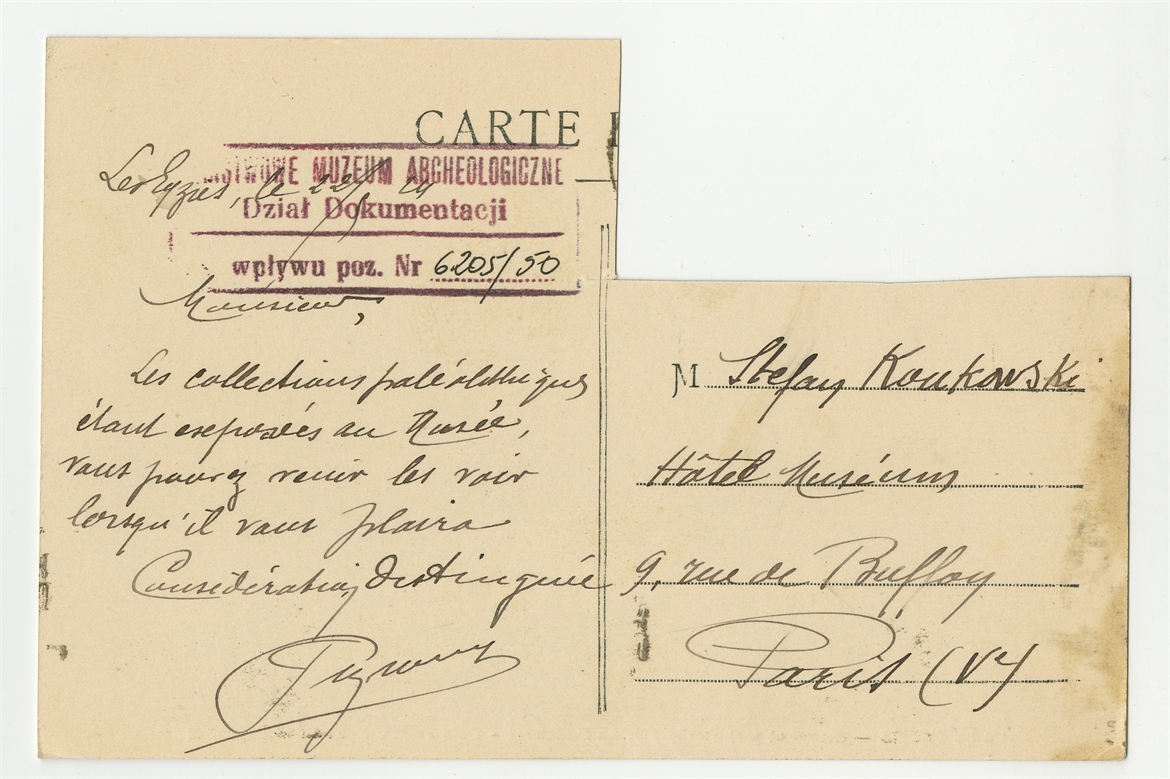 CARTE
STWOWE MUZEUM ARCHEOLOGICZNE
Dział Dokumentacji
wpływu poz. Nr 6205/50
Les Eyzies, le 22
Monsieur,
Les collections paléolithiques
étant exposées au Musée,
vous pouvez venir les voir
lorsqu'il vous plaira
Considération distinguée
M Stefan Kroukowski
Hôtel Muséum
9, rue de Buffon
Paris (Ve)